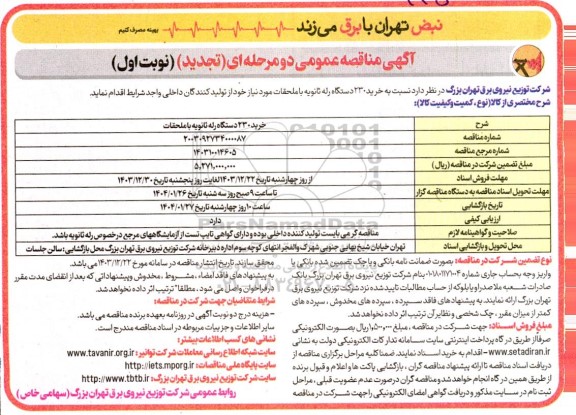 نبض تهران با برق می زند
بهینه مصرف کنیم
آگهی مناقصه عمومی دو مرحله ای (تجدید) (نوبت اول)
شرکت توزیع نیروی برق تهران بزرگ در نظر دارد نسبت به خرید ۲۳۰ دستگاه رله ثانویه با ملحقات مورد نیاز خود از تولید کنندگان داخلی واجد شرایط اقدام نماید.
شرح مختصری از کالا (نوع، کمیت و کیفیت کالا):
شرح
خرید ۲۳۰ دستگاه رله ثانویه با ملحقات
شماره مناقصه
۲۰۰۳۰۹۲۷۳۴۰۰۰۰۸۷
شماره مرجع مناقصه
۱۴۰۳۱۰۰۱۴۶۰۵
مبلغ تضمین شرکت در مناقصه (ریال)
۵,۳۷۱,۰۰۰,۰۰۰
مهلت فروش اسناد
از روز چهارشنبه تاریخ ۱۴۰۳/۱۲/۲۲ لغایت روز پنجشنبه تاریخ ۱۴۰۳/۱۲/۳۰
مهلت تحویل اسناد مناقصه به دستگاه مناقصه گزار
تا ساعت ۹ صبح روز سه شنبه تاریخ ۱۴۰۴/۰۱/۲۶
تاریخ بازگشایی
ساعت ۱۰ روز چهارشنبه تاریخ ۱۴۰۴/۰۱/۲۷
ارزیابی کیفی
دارد
صلاحیت و گواهینامه لازم
مناقصه گر می بایست تولید کننده داخلی بوده و دارای گواهی تایپ تست از آزمایشگاههای مرجع در خصوص رله ثانویه باشد.
محل تحویل و بازگشایی اسناد
تهران خیابان شیخ بهایی جنوبی شهرک والفجر انتهای کوچه سوم اداره دبیرخانه شرکت توزیع نیروی برق تهران بزرگ محل بازگشایی: سالن جلسات
نوع تضمین شرکت در مناقصه: بصورت ضمانت نامه بانکی و یا چک تضمین شده بانکی یا
واریز وجه بحساب جاری شماره
بنام شرکت توزیع نیروی برق تهران بزرگ بانک
صادرات شعبه ملاصدرا و یا بلوکه از حساب مطالبات تایید شده نزد شرکت توزیع نیروی برق
تهران بزرگ ارائه نمایند. به پیشنهادهای فاقد سپرده، سپرده های مخدوش، سپرده های
کمتر از میزان مقرر، چک شخصی و نظایر آن ترتیب اثر داده نخواهد شد.
مبلغ فروش اسناد: جهت شرکت در مناقصه، مبلغ ۱,۵۰۰,۰۰۰ ریال بصورت الکترونیکی
صرفاً از طریق درگاه پرداخت اینترنتی سایت سامانه تدارکات الکترونیکی دولت به نشانی
www.setadiran.ir - اقدام به خرید اسناد نمایند. ضمنا کلیه مراحل برگزاری مناقصه از
دریافت اسناد مناقصه تا ارائه پیشنهاد مناقصه گران، بازگشایی پاکت ها و اعلام و قبول برنده
از طریق همین درگاه انجام خواهد شد و مناقصه گران در صورت عدم عضویت قبلی، مراحل
ثبت نام در سایت مذکور و دریافت گواهی امضای الکترونیکی را جهت شرکت در مناقصه
محقق سازند. تاریخ انتشار مناقصه در سامانه مورخ ۱۴۰۳/۱۲/۲۲ می باشد.
به پیشنهاد های فاقد امضاء، مشروط، مخدوش و پیشنهاداتی که بعد از انقضای مدت مقرر
در فراخوان واصل می شود، مطلقا ترتیب اثر داده نخواهد شد.
شرایط متقاضیان جهت شرکت در مناقصه:
- هزینه درج دو نوبت آگهی در روزنامه بعهده برنده مناقصه می باشد.
سایر اطلاعات و جزییات مربوطه در اسناد مناقصه مندرج است.
نشانی های کسب اطلاعات بیشتر:
سایت شبکه اطلاع رسانی معاملات شرکت توانیر: www.tavanir.org.ir
سایت پایگاه ملی مناقصات: http://iets.mporg.ir
سایت شرکت توزیع نیروی برق تهران بزرگ: http://www.tbtb.ir
روابط عمومی شرکت توزیع نیروی برق تهران بزرگ (سهامی خاص)
ParsNamadData